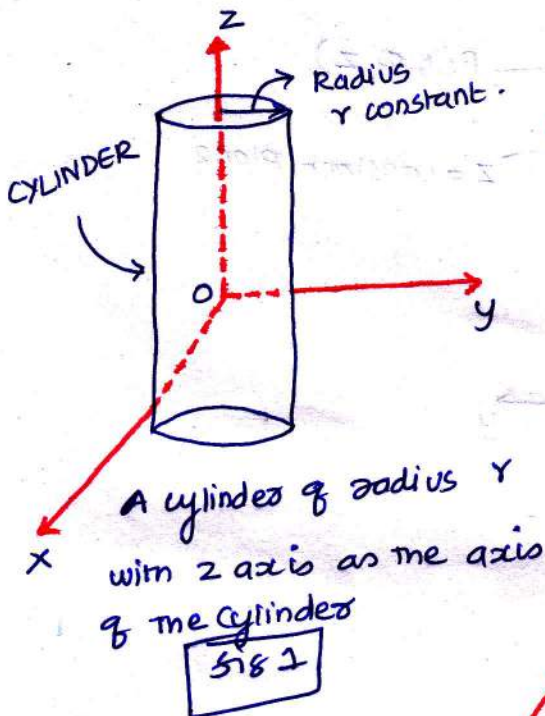 Z
Radius
r constant.
CYLINDER
O
y
X
A cylinder of radius r
with z axis as the axis
of the cylinder
fig 1